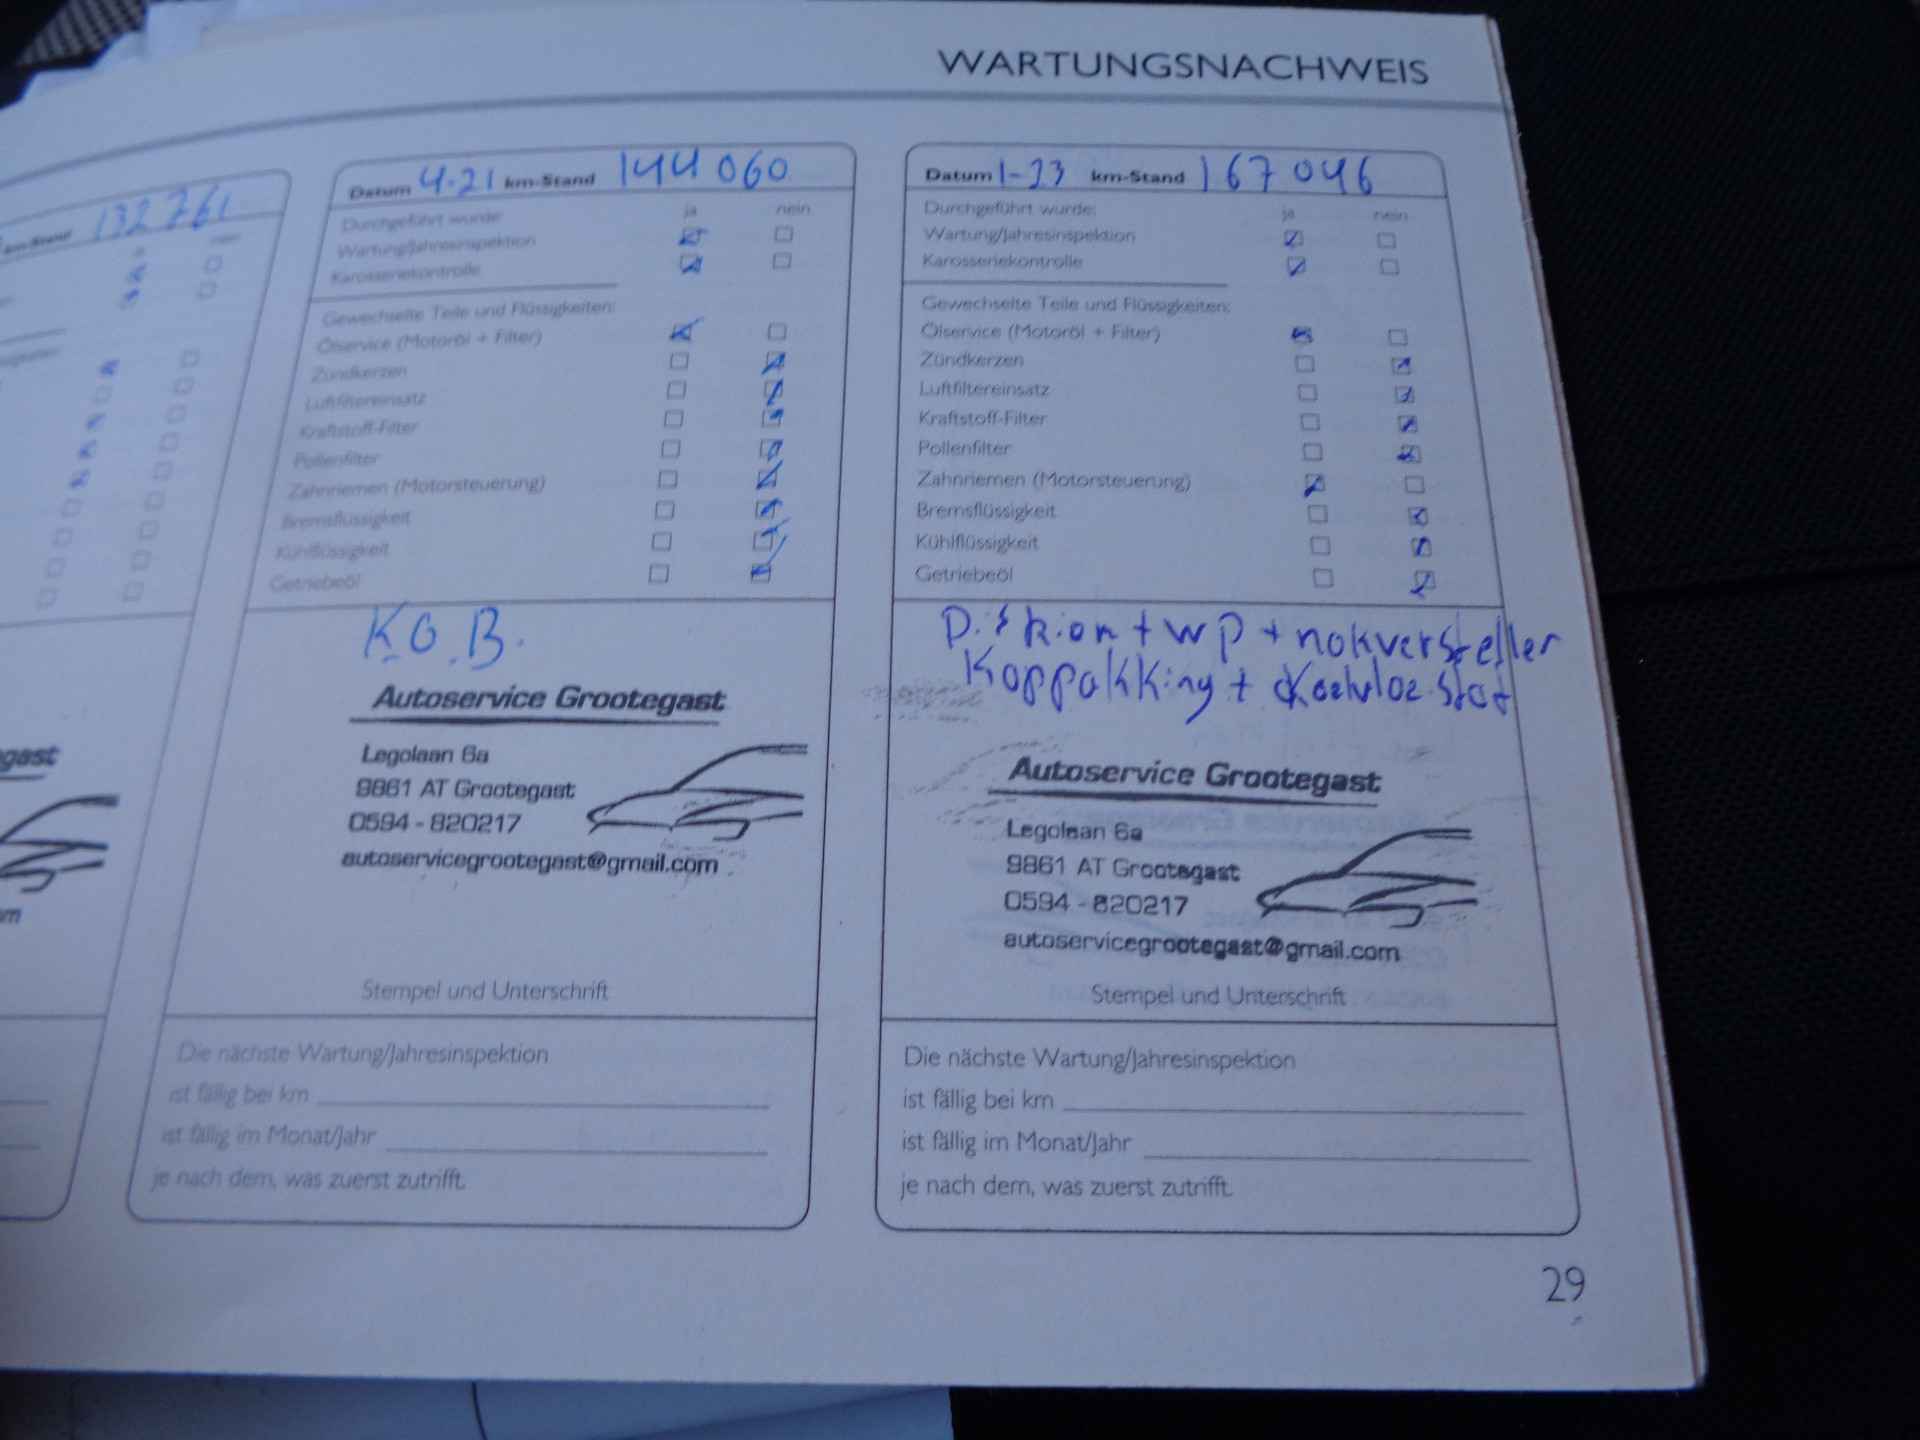 WARTUNGSNACHWEIS
km-Stand 132 761
nein
gast
Datum 4-21 km-Stand 144 060
Durchgeführt wurde: ja nein
Wartung/Jahresinspektion
Karosseriekontrolle
Gewechselte Teile und Flüssigkeiten:
Ölservice (Motoröl + Filter)
Zündkerzen
Luftfiltereinsatz
Kraftstoff-Filter
Pollenfilter
Zahnriemen (Motorsteuerung)
Bremsflüssigkeit
Kühlflüssigkeit
Getriebeöl
Autoservice Grootegast
Legolaan 6a
9861 AT Grootegast
0594 - 820217
autoservicegrootegast@gmail.com
Stempel und Unterschrift
Die nächste Wartung/Jahresinspektion
ist fällig bei km
ist fällig im Monat/Jahr
je nach dem, was zuerst zutrifft.
Datum 1-23 km-Stand 167 046
Durchgeführt wurde: ja nein
Wartung/Jahresinspektion
Karosseriekontrolle
Gewechselte Teile und Flüssigkeiten:
Ölservice (Motoröl + Filter)
Zündkerzen
Luftfiltereinsatz
Kraftstoff-Filter
Pollenfilter
Zahnriemen (Motorsteuerung)
Bremsflüssigkeit
Kühlflüssigkeit
Getriebeöl
+ wp + nokversteller
Koppakking +
Autoservice Grootegast
Legolaan 6a
9861 AT Grootegast
0594 - 820217
autoservicegrootegast@gmail.com
Stempel und Unterschrift
Die nächste Wartung/Jahresinspektion
ist fällig bei km
ist fällig im Monat/Jahr
je nach dem, was zuerst zutrifft.
29